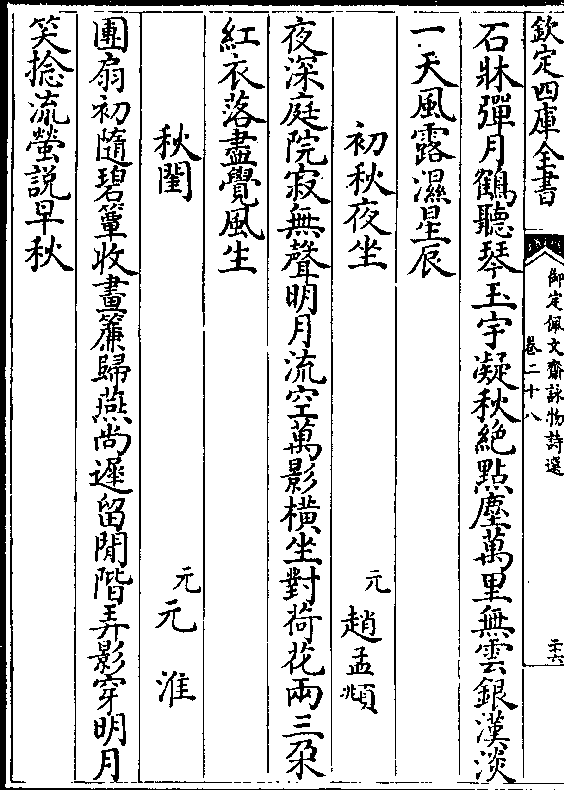 欽定四庫全書
御定佩文齋詠物詩選
卷二十八
二十六
石牀彈月鶴聽琴玉宇凝秋絶點塵萬里無雲銀漢淡
一天風露濕星辰
初秋夜坐
元
趙孟頫
夜深庭院寂無聲明月流空萬影橫坐對荷花兩三朶
紅衣落盡覺風生
秋閨
元
元淮
團扇初隨碧簟收畫簾歸燕尚遲留閒階弄影穿明月
笑捻流螢説早秋